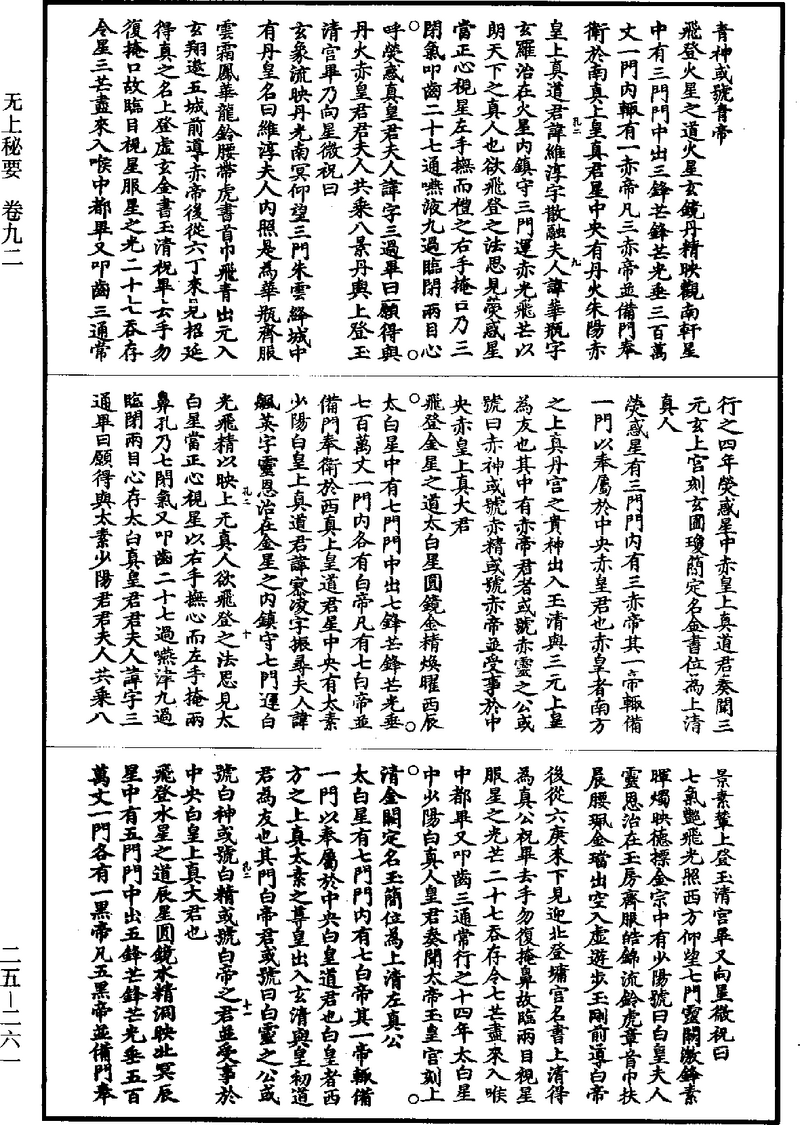 无上秘要 卷九二
二五－二六一
青神或號青帝
飛登火星之道火星玄鏡丹精映觀南軒星
中有三門門中出三鋒芒鋒芒光垂三百萬
丈一門內輙有一赤帝凡三赤帝並備門奉
衛於南真上皇真君星中央有丹火朱陽赤
皇上真道君諱維淳字散融夫人諱華瓶字
玄羅治在火星內鎮守三門運赤光飛芒以
朗天下之真人也欲飛登之法思見熒惑星
當正心視星左手撫而禮之右手掩口乃三
閉氣叩齒二十七通嚥液九過臨閉兩目心
呼熒惑真皇君夫人諱字三過畢曰願得與
丹火赤皇君君夫人共乘八景丹輿上登玉
清宮畢乃向星微祝曰
玄象流映丹光南冥仰望三門朱雲絳城中
有丹皇名曰維淳夫人內照是為華瓶齊服
雲霜鳳華龍鈴腰帶虎書首巾飛青出元入
玄翔遨五城前導赤帝後從六丁來見招延
得真之名上登虛玄金書玉清祝畢去手勿
復掩口故臨目視星服星之光二十七吞存
令星三芒盡來入喉中都畢又叩齒三通常
行之四年熒惑星中赤皇上真道君奏聞三
元玄上宮刻玄圖瓊簡定名金書位為上清
真人
熒惑星有三門門內有三赤帝其一帝輙備
一門以奉屬於中央赤皇君也赤皇者南方
之上真丹宮之貴神出入玉清與三元上皇
為友也其中有赤帝君者或號赤靈之公或
號曰赤神或號赤精或號赤帝並受事於中
央赤皇上真大君
飛登金星之道太白星圓鏡金精煥曜西辰
太白星中有七門門中出七鋒芒鋒芒光垂
七百萬丈一門內各有白帝凡有七白帝並
備門奉衛於西真上皇道君星中央有太素
少陽白皇上真道君諱寥凌字振尋夫人諱
飆英字靈恩治在金星之內鎮守七門運白
光飛精以映上元真人欲飛登之法思見太
白星當正心視星以右手撫心而左手掩兩
鼻孔乃七閉氣又叩齒二十七過嚥津九過
臨閉兩目心存太白真皇君君夫人諱字三
通畢曰願得與太素少陽君君夫人共乘八
景素輦上登玉清宮畢又向星微祝曰
七氣艷飛光照西方仰望七門靈闕激鋒素
暉燭映德標金宗中有少陽號曰白皇夫人
靈恩治在玉房齊服皓錦流鈴虎章首巾扶
晨腰珮金璫出空入虛遊步玉剛前導白帝
後從六庚來下見迎北登墉宮名書上清得
為真公祝畢去手勿復掩鼻故臨兩目視星
服星之光芒二十七吞存令七芒盡來入喉
中都畢又叩齒三通常行之十四年太白星
中少陽白真人皇君奏聞太帝玉皇宮刻上
清金闕定名玉簡位為上清左真公
太白星有七門門內有七白帝其一帝輙備
一門以奉屬於中央白皇道君也白皇者西
方之上真太素之尊皇出入玄清與皇初道
君為友也其門白帝君或號曰白靈之公或
號白神或號白精或號白帝之君並受事於
中央白皇上真大君也
飛登水星之道辰星圓鏡水精洞映北冥辰
星中有五門門中出五鋒芒鋒芒光垂五百
萬丈一門各有一黑帝凡五黑帝並備門奉